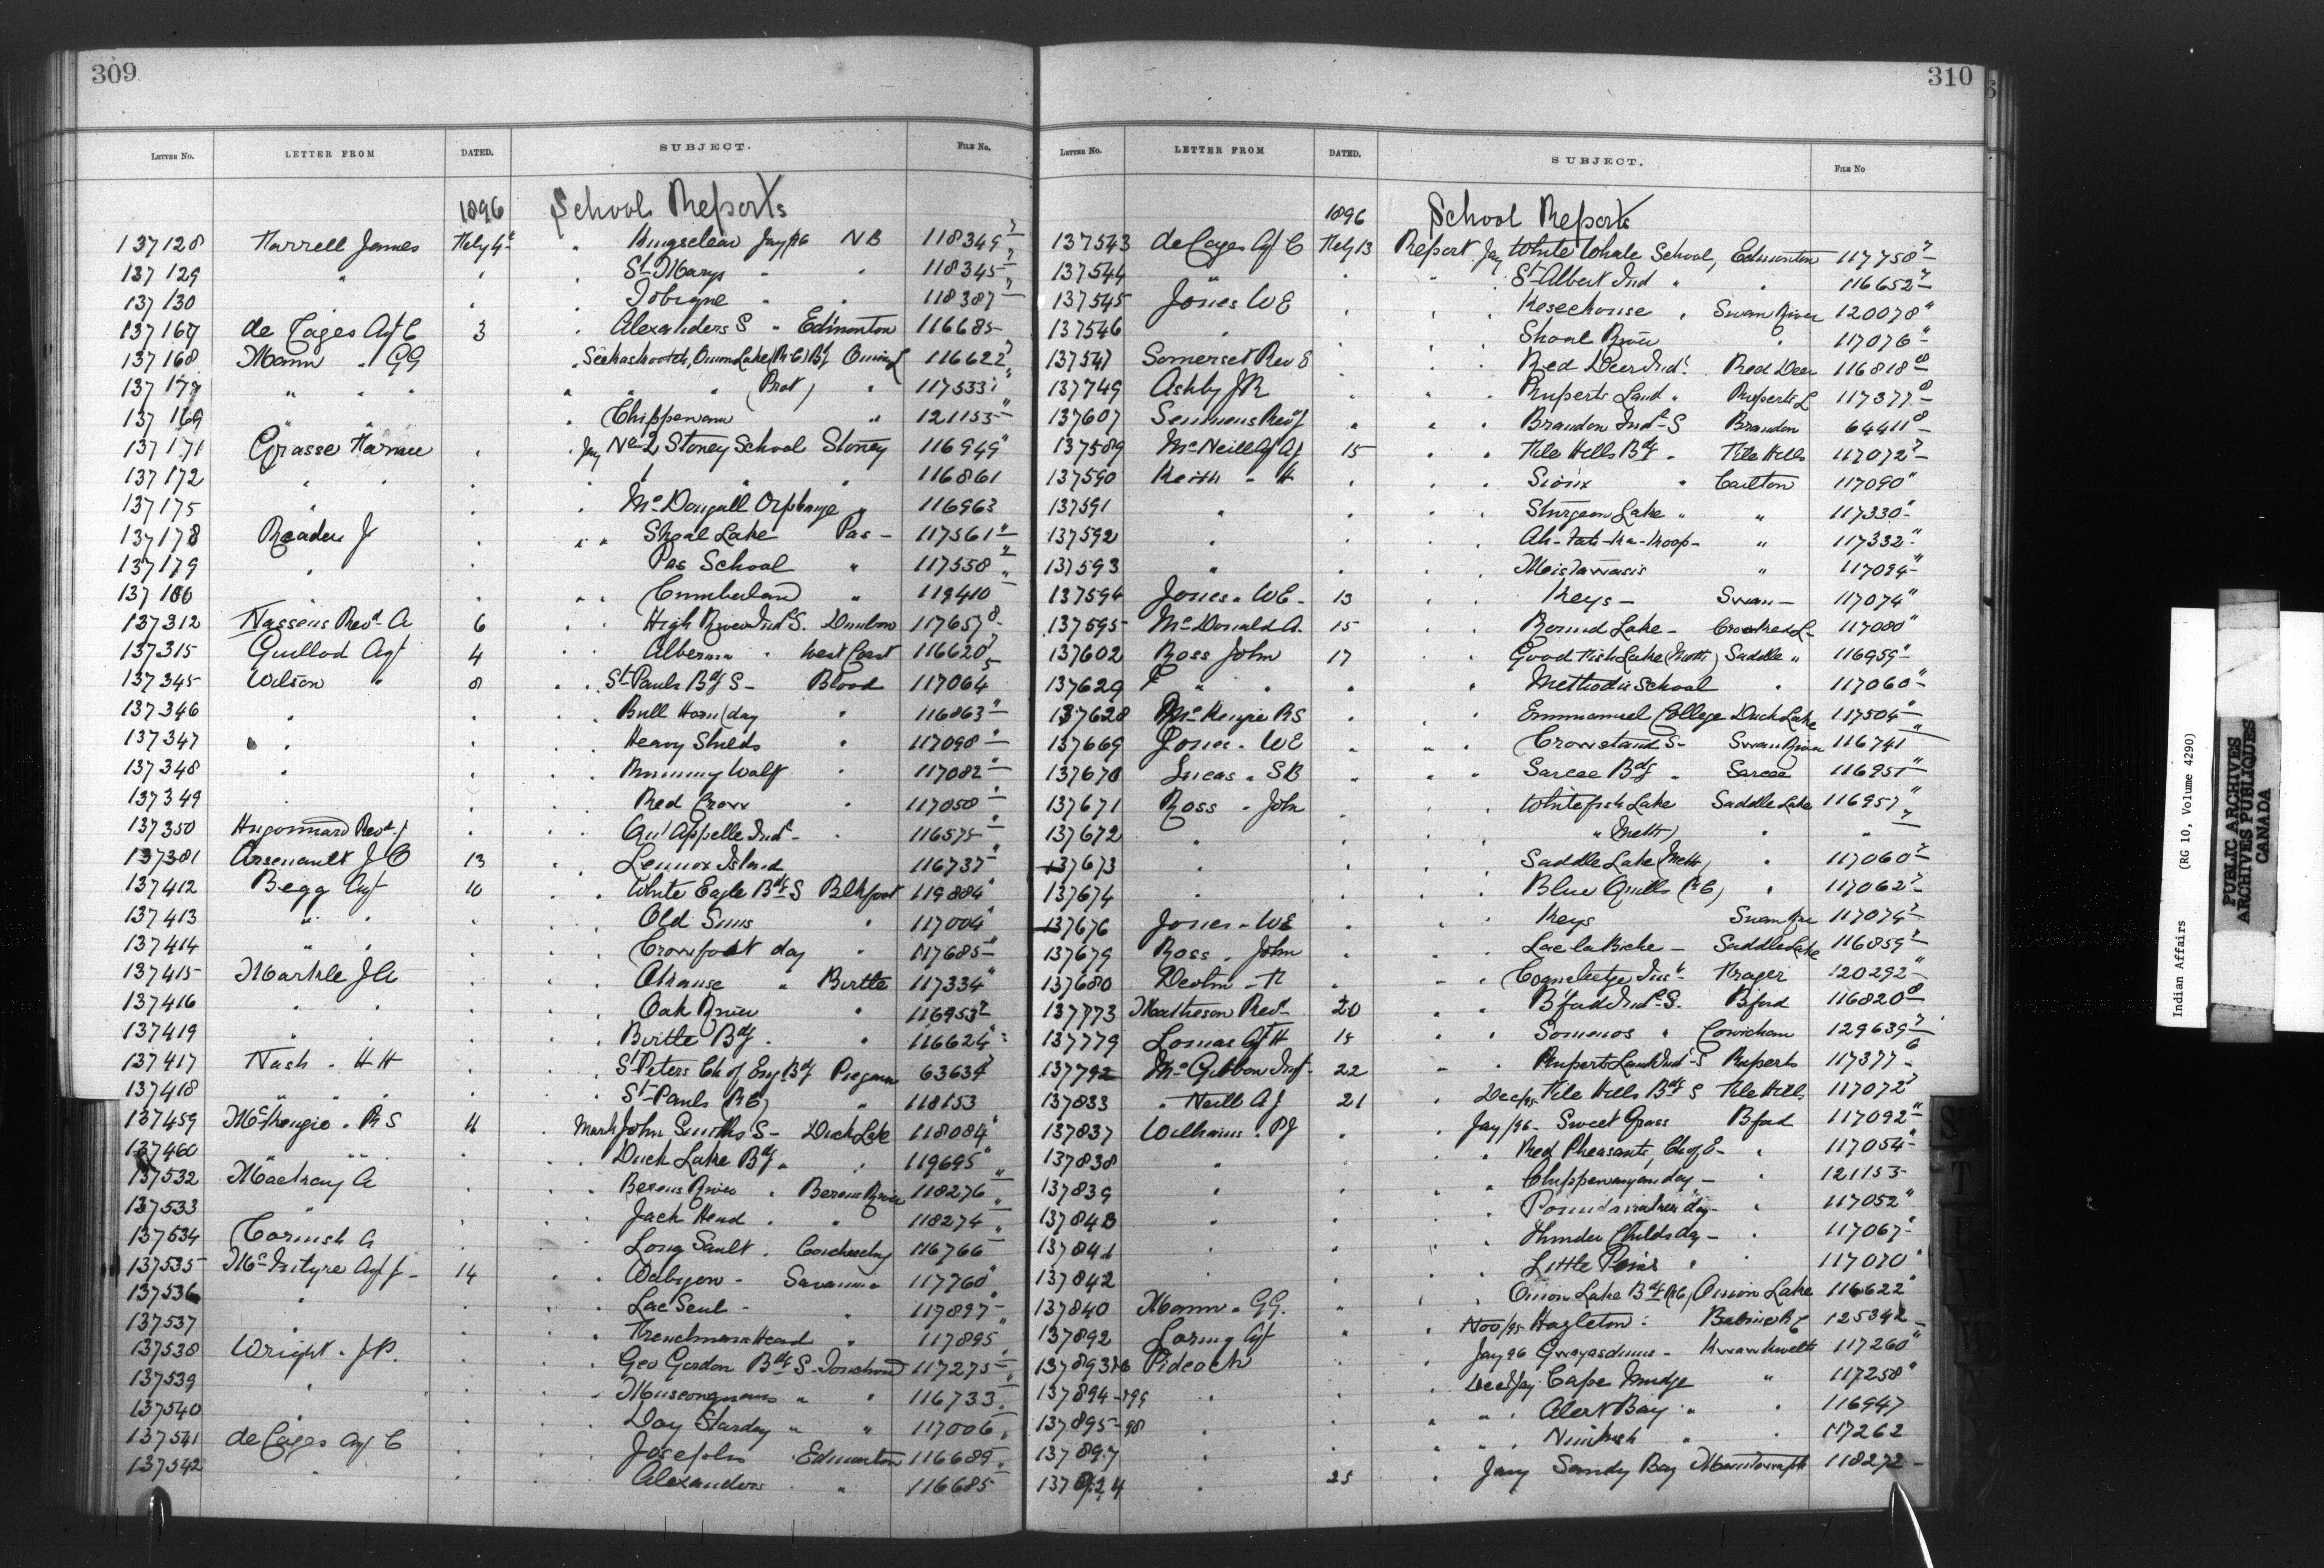 309
LETTER NO. LETTER FROM DATED. SUBJECT. FILE No.
1896 School Reports
137128 Farrell James Feby 4 " Kingsclear Jay/96 NB 118349
137129 " " " St Marys " " 118345
137130 " " " Tobique " " 118387
137167 de Cazes Agt C 3 " Alexanders S " Edmonton 116685
137168 Mann " GG " Seekaskootch, Onion Lake (R C) Bdg Onion L 116622
137177 " " " " " " (Prot) " 117533
137169 " " Chippewan " 121153
137171 Grasse " Jay No 2 Stoney School Stoney 116949
137172 " " " " " " 116861
137175 " " " McDougall Orphanage " 116963
137178 Reader J " " " Shoal Lake Pas - 117561
137179 " " Pas School " 117558
137180 " " " Cumberland " 119410
137312 Revd A 6 " " High River Indl S. Dunbow 117657
137315 Guillod Agt 4 " " Alberni " West Coast 116620
137345 Wilson " 8 " " St Pauls Bdg S - Blood 117064
137346 " " " " Bull Horn (day " 116863
137347 " " " " Heavy Shields " 117098
137348 " " " " Running Wolf " 117082
137349 " " " " Red Crow " 117058
137350 Hugonnard Revd J " " " Qu'Appelle Indl - " 116575
137381 Arsenault J O 13 " Lennox Island 116737
137412 Begg Agt 10 " " White Eagle Bdg S Blkfoot 119884
137413 " " " " " Old Suns " 117004
137414 " " " " " Crowfoot day " 117685
137415 Markle J A " " " Okanase " Birtle 117334
137416 " " " " " Oak River " 116953
137419 " " " " " Birtle Bdg. " 116624
137417 Nash " H H " " " St Peters Ch of Eng Bdg Piegan 63634
137418 " " " " " St Pauls (R C) " 118153
137459 McKenzie " R S 11 " March John Smiths S - Duck Lake 118084
137460 " " " " " Duck Lake Bdg " " 119695
137532 Mackay A " " " Berens River " Berens River 118276
137533 " " " " Jack Head " " 118274
137534 Cornish A " " " Long Sault " Coucheeching 116766
137535 McIntyre Agt J - 14 " " Wabigon - Savanne 117760
137536 " " " " Lac Seul - " 117897
137537 " " " " Frenchmans Head " 117895
137538 Wright " J P. " " " Geo Gordon Bdg S. Touchwd 117275
137539 " " " " Muscowquans " " 116733
137540 " " " " Day Star day " " 117006
137541 de Cazes Agt C " " " Josephs Edmonton 116689
137542 " " " " Alexanders " " 116685
310
LETTER NO. LETTER FROM DATED. SUBJECT. FILE No
1896 School Reports
137543 de Cazes Agt C Feby 13 Report Jay White Whale School, Edmonton 117750
137544 " " " St Albert Ind " " 116652
137545 Jones W E " " " Keseehouse " Swan River 120078
137546 " " " Shoal River " 117076
137547 Somerset Rev E " " " Red Deer Indl Red Deer 116818
137749 Ashby J R " " " Ruperts Land " Ruperts L 117377
137607 Semmens Rev J " " " Brandon Indl S Brandon 64411
137589 McNeill Agt A J 15 " " File Hills Bdg " File Hills 117072
137590 Keith " H " " " Sioux " Carlton 117090
137591 " " " " Sturgeon Lake " " 117330
137592 " " " Ah-tah-ka-koop - " 117332
137593 " " " Mistawasis " 117094
137594 Jones " W E - 13 " " Keys - Swan - 117074
137595 McDonald A. 15 " " Round Lake - Crooked L - 117080
137602 Ross John 17 " " Good Fish Lake (Meth) Saddle " 116959
137629 " " " " Methodist School " 117060
137628 McKenzie R S " " Emmanuel College Duck Lake 117504
137669 Jones " W E " " " Crowstand S - Swan River 116741
137670 Lucas " S B " " " Sarcee Bdg " Sarcee 116951
137671 Ross " John " " Whitefish Lake Saddle Lake 116957
137672 " " " " (Meth) " "
137673 " " " Saddle Lake (Meth) " 117060
137674 " " " Blue Quills (R C) " 117062
137676 Jones " W E " " Keys Swan River 117074
137679 Ross " John " " Lac la Biche - Saddle Lake 116859
137680 Devlin - F " " " Coqualeetza Inst Fraser 120292
137773 Matheson Revd 20 " " B'ford Indl S. Bford 116820
137779 Lomas Agt H 18 " " Somenos " Cowichan 129639
137792 McGibbon Insp - 22 " " Ruperts Land Indl S Ruperts 117377
137833 " Neill A J 21 " Dec/95 File Hills Bdg S File Hills 117072
137837 Williams " P J " " Jay/96 - Sweet Grass Bford 117092
137838 " " " Red Pheasants, Ch of E - " 117054
137839 " " " " Chippewayan day - " 121153
137843 " " " Poundmaker day - " 117052
137841 " " " Thunder Childs day - " 117067
137842 " " " Little Pine " " 117070
137840 Mann " G G. " " Onion Lake Bdg (RC) Onion Lake 116622
137892 Loring Agt " " Nov/95 Hazleton " Babine & 125342
137893 Pidcock " Jay 96 Gwayasdums - Kwawkwelth 117260
137894 - " " " Dec & Jay Cape Mudge " 117258
137895 - 98 " " " " Alert Bay " " 116947
137897 " " " " Nimkish " " 117262
137924 " 25 " Jany Sandy Bay Manitowapah 118272
S
T
U
W
Y
Indian Affairs (RG 10, Volume 4290)
PUBLIC ARCHIVES
ARCHIVES PUBLIQUES
CANADA